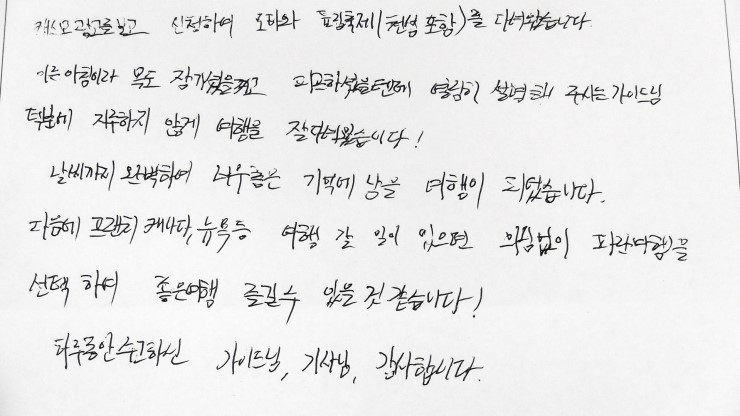 캐스모 광고를 보고 신청하여 오타와 튤립축제(천섬 포함)를 다녀왔습니다.
이른 아침이라 목도 잠기셨을테고 피곤하셨을텐데 열심히 설명해 주시는 가이드님
덕분에 지루하지 않게 여행을 잘 다녀왔습니다!
날씨까지 완벽하여 너무 좋은 기억에 남을 여행이 되었습니다.
다음에 캐나다, 뉴욕 등 여행 갈 일이 있으면 의심없이 파란여행을
선택 하여 좋은여행 즐길수 있을 것 같습니다!
하루종안 수고하신 가이드님, 기사님, 감사합니다.